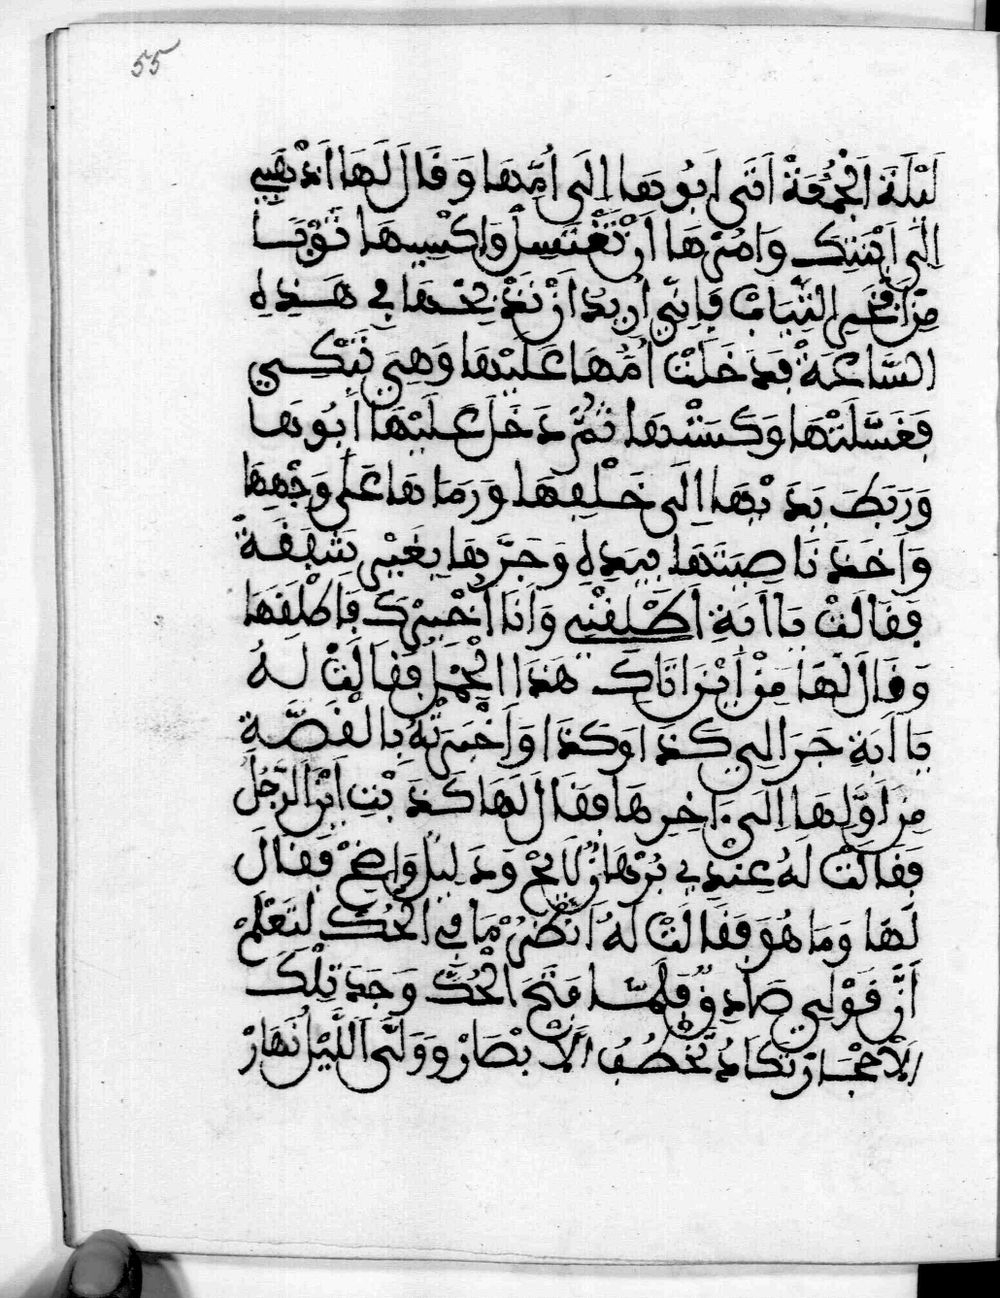 55
لَيْلَةَ الْجُمُعَةْ اَتَى اَبُوهَا اِلَى اُمِّهَا وَقَالَ لَهَا اَذْهَبِي
اِلَى اِبْنَتِكِ وَامُرْهَا اَنْ تَغْتَسِلْ وَاكْسِيهَا ثَوْبًا
مِنْ اَفْخَمِ الثِّيَابْ فَاِنِّي اُرِيدُ اَنْ نَذْبَحْهَا فِي هَذِهِ
السَّاعَةْ فَدَخَلَتْ اُمُّهَا عَلَيْهَا وَهِيَ تَبْكِي
فَغَسَّلَتْهَا وَكَسَتْهَا ثُمَّ دَخَلَ عَلَيْهَا اَبُوهَا
وَرَبَطَ يَدَيْهَا اِلَى خَلْفِهَا وَرَمَاهَا عَلَى وَجْهِهَا
وَاَخَذَ نَاصِيَتَهَا بِيَدِهِ وَجَرَّهَا بِغَيْرِ شَفَقَةٍ
فَقَالَتْ يَا اَبَةِ اَطْلِقْنِي وَاَنَا اُخْبِرُكَ فَاَطْلَقَهَا
وَقَالَ لَهَا مِنْ اَيْنَ اَتَاكِ هَذَا الْحَمْلُ فَقَالَتْ لَهُ
يَا اَبَةِ جَرَا لِي كَذَا وَكَذَا وَاَخْبَرَتْهُ بِالْقَصَّةِ
مِنْ اَوَّلِهَا اِلَى ءَاخِرِهَا فَقَالَ لَهَا كَذَبْتِ اَيْنَ الرَّجُلُ
فَقَالَتْ لَهُ عِنْدِي بُرْهَانٌ لَايِحْ وَدَلِيلٌ وَاضِحْ فَقَالَ
لَهَا وَمَا هُوَ فَقَالَتْ لَهُ اَنْظُرْ مَا فِي الْحُكِّ لِتَعْلَمْ
اَنَّ قَوْلِي صَادِقٌ فَلَمَّا فَتَحَ الْحُكَّ وَجَدَ تِلْكَ
الْاَحْجَارْ تَكَادُ تَخْطُفُ الْاَبْصَارْ وَوَلَّى اللَّيْلُ نَهَارْ